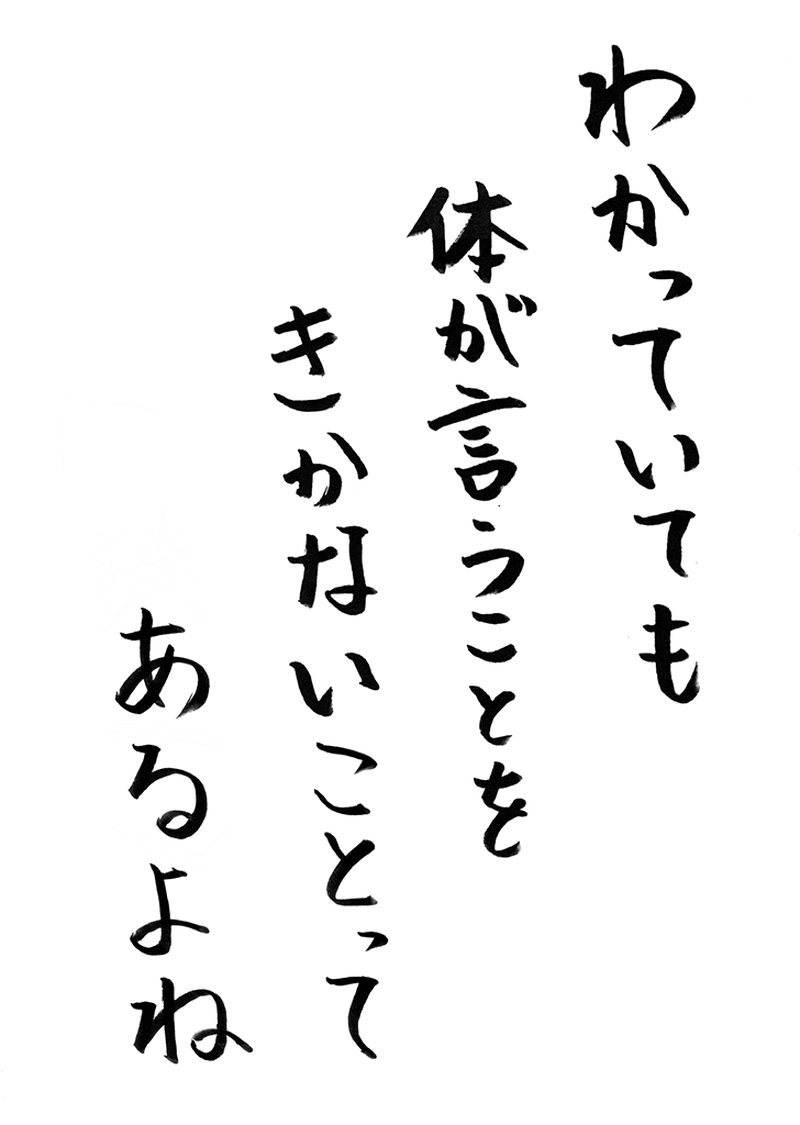 わかっていても
体が言うことを
きかないことって
あるよね